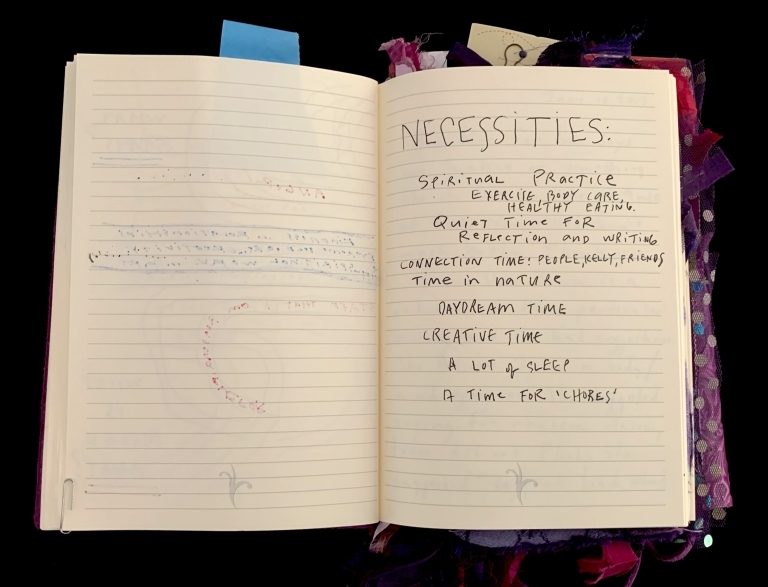 NECESSITIES:
SPIRITUAL PRACTICE
EXERCISE, BODY CARE,
HEALTHY EATING.
QUIET TIME FOR
REFLECTION AND WRITING
CONNECTION TIME: PEOPLE, KELLY, FRIENDS
TIME IN NATURE
DAYDREAM TIME
CREATIVE TIME
A LOT of SLEEP
A TIME FOR 'CHORES'